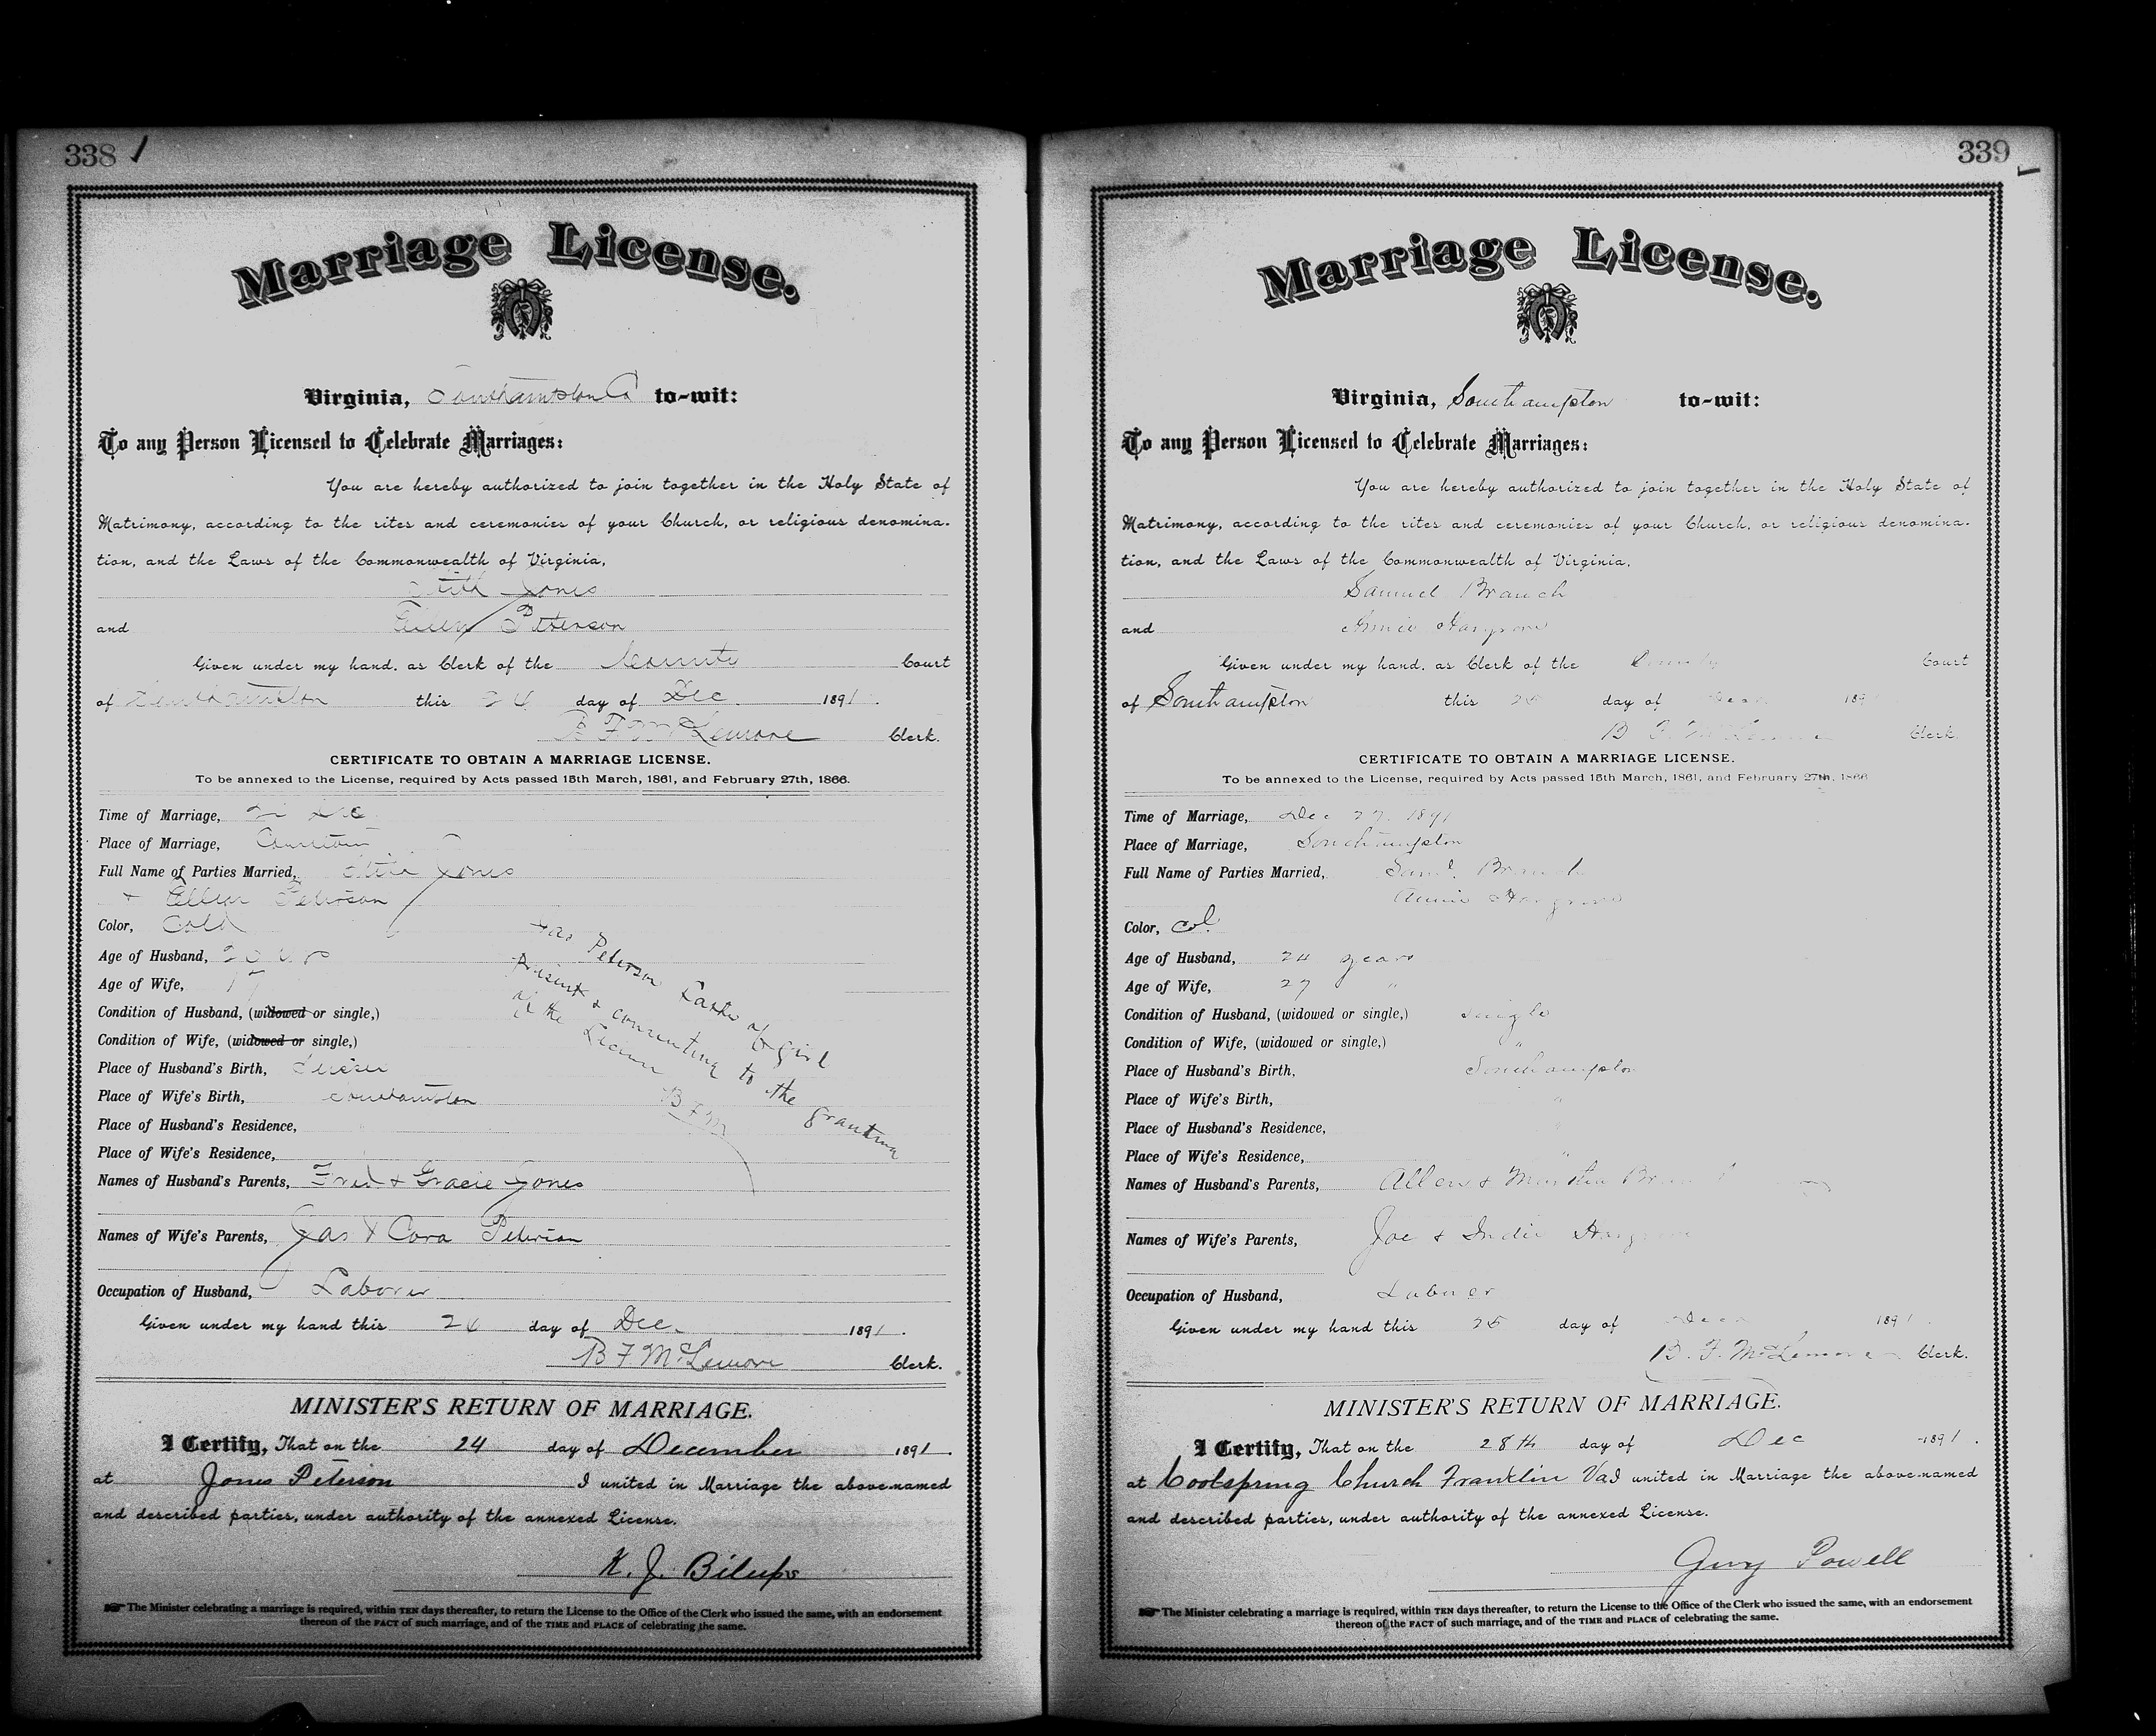 338
Marriage License.
Virginia, Southampton Co to-wit:
To any Person Licensed to Celebrate Marriages:
You are hereby authorized to join together in the Holy State of
Matrimony, according to the rites and ceremonies of your Church, or religious denomina-
tion, and the Laws of the Commonwealth of Virginia,
Jones
and Peterson
Given under my hand, as Clerk of the County Court
of Southampton this day of Dec 1891.
B F McLemore Clerk.
CERTIFICATE TO OBTAIN A MARRIAGE LICENSE.
To be annexed to the License, required by Acts passed 15th March, 1861, and February 27th, 1866.
Time of Marriage, Dec
Place of Marriage,
Full Name of Parties Married, Jones
+ Peterson
Color, Cold
Age of Husband, 20 yrs
Age of Wife, 17
Condition of Husband, (widowed or single,)
Condition of Wife, (widowed or single,)
Place of Husband's Birth, Sussex
Place of Wife's Birth, Southampton
Place of Husband's Residence,
Place of Wife's Residence,
Jas Peterson Father of girl
Present & consenting to the granting
of the License
B F M
Names of Husband's Parents, Fred + Gracie Jones
Names of Wife's Parents, Jas & Cora Peterson
Occupation of Husband, Laborer
Given under my hand this day of Dec. 1891.
B F McLemore Clerk.
MINISTER'S RETURN OF MARRIAGE.
I Certify, That on the 24 day of December 1891
at Jones Peterson I united in Marriage the above-named
and described parties, under authority of the annexed License.
K. J. Bilups
The Minister celebrating a marriage is required, within TEN days thereafter, to return the License to the Office of the Clerk who issued the same, with an endorsement
thereon of the FACT of such marriage, and of the TIME and PLACE of celebrating the same.
339
Marriage License.
Virginia, Southampton to-wit:
To any Person Licensed to Celebrate Marriages:
You are hereby authorized to join together in the Holy State of
Matrimony, according to the rites and ceremonies of your Church, or religious denomina-
tion, and the Laws of the Commonwealth of Virginia,
Samuel Branch
and Annie Hargrove
Given under my hand, as Clerk of the County Court
of Southampton this day of 189
B. F. McLemore Clerk.
CERTIFICATE TO OBTAIN A MARRIAGE LICENSE.
To be annexed to the License, required by Acts passed 15th March, 1861, and February 27th, 1866
Time of Marriage, Dec 27. 1891
Place of Marriage, Southampton
Full Name of Parties Married, Saml. Branch
Annie Hargrove
Color, col.
Age of Husband, 24 years
Age of Wife, 27 "
Condition of Husband, (widowed or single,) single
Condition of Wife, (widowed or single,) "
Place of Husband's Birth, Southampton
Place of Wife's Birth, "
Place of Husband's Residence, "
Place of Wife's Residence, "
Names of Husband's Parents, Allen & Branch
Names of Wife's Parents, Joe & Indie Hargrove
Occupation of Husband, Laborer
Given under my hand this day of 1891.
B. F. McLemore Clerk.
MINISTER'S RETURN OF MARRIAGE.
I Certify, That on the 28th day of Dec 1891.
at Coolspring Church Franklin Va I united in Marriage the above-named
and described parties, under authority of the annexed License.
Guy Powell
The Minister celebrating a marriage is required, within TEN days thereafter, to return the License to the Office of the Clerk who issued the same, with an endorsement
thereon of the FACT of such marriage, and of the TIME and PLACE of celebrating the same.